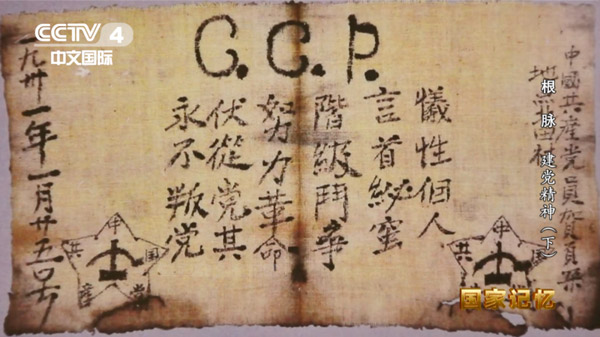 CCTV 4
中文国际
C.C.P.
中國共産党員賀頁朵
地點
犧牲個人
言首秘蜜
階級鬥争
努力革命
伏從党其
永不叛党
一九卅一年一月廿五号
中国共產党
中国共產党
根脉 建党精神（下）
国家记忆